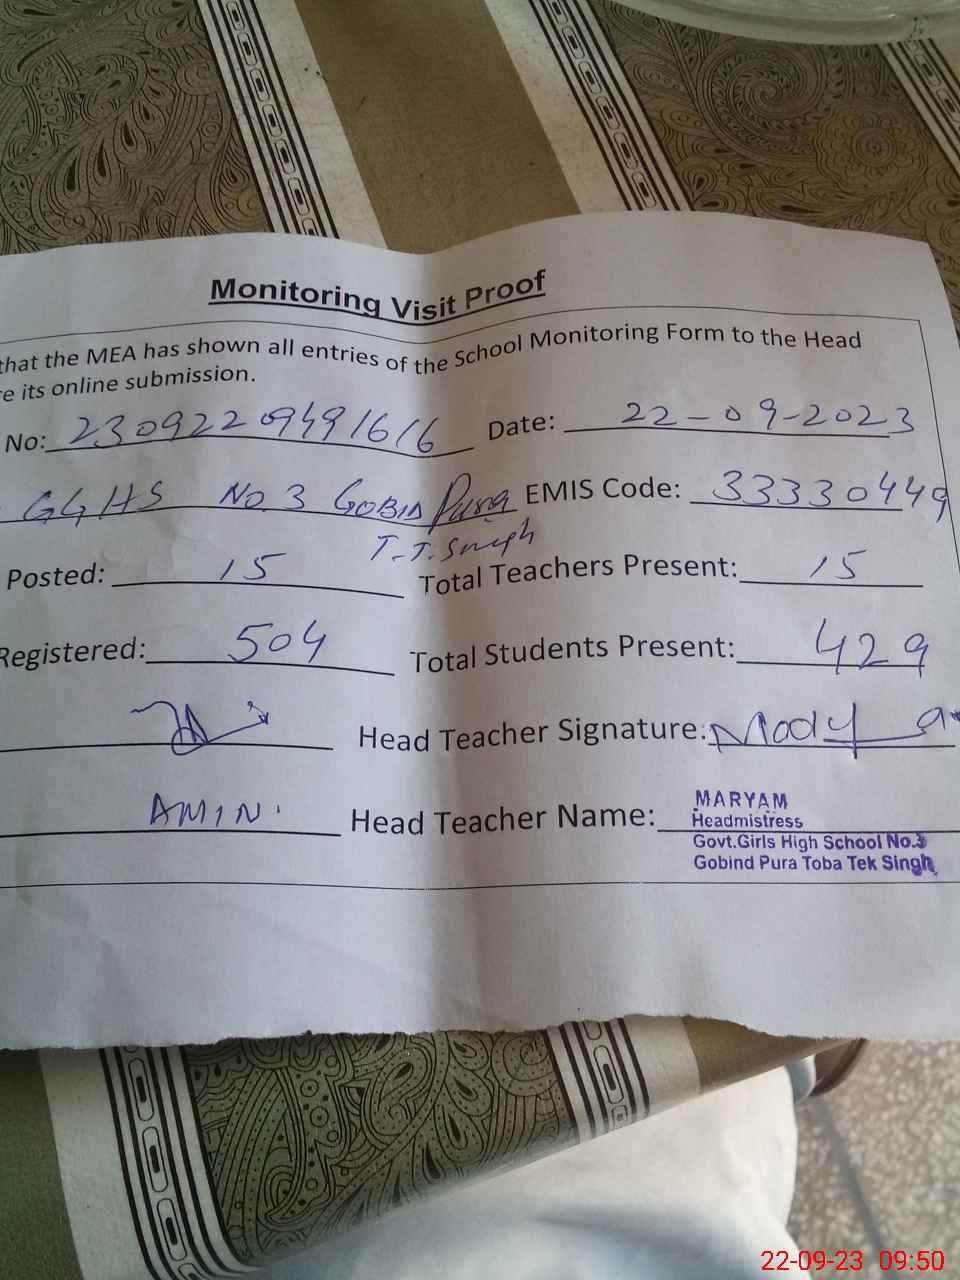 Monitoring Visit Proof
that the MEA has shown all entries of the School Monitoring Form to the Head
re its online submission.
No: 23092209491616 Date: 22-09-2023
GGHS No. 3 GOBIND Pura EMIS Code: 33330449
T.T. Singh
Posted: 15 Total Teachers Present: 15
Registered: 504 Total Students Present: 429
Head Teacher Signature:
AMIN. Head Teacher Name: MARYAM
Headmistress
Govt.Girls High School No.3
Gobind Pura Toba Tek Singh
22-09-23 09:50